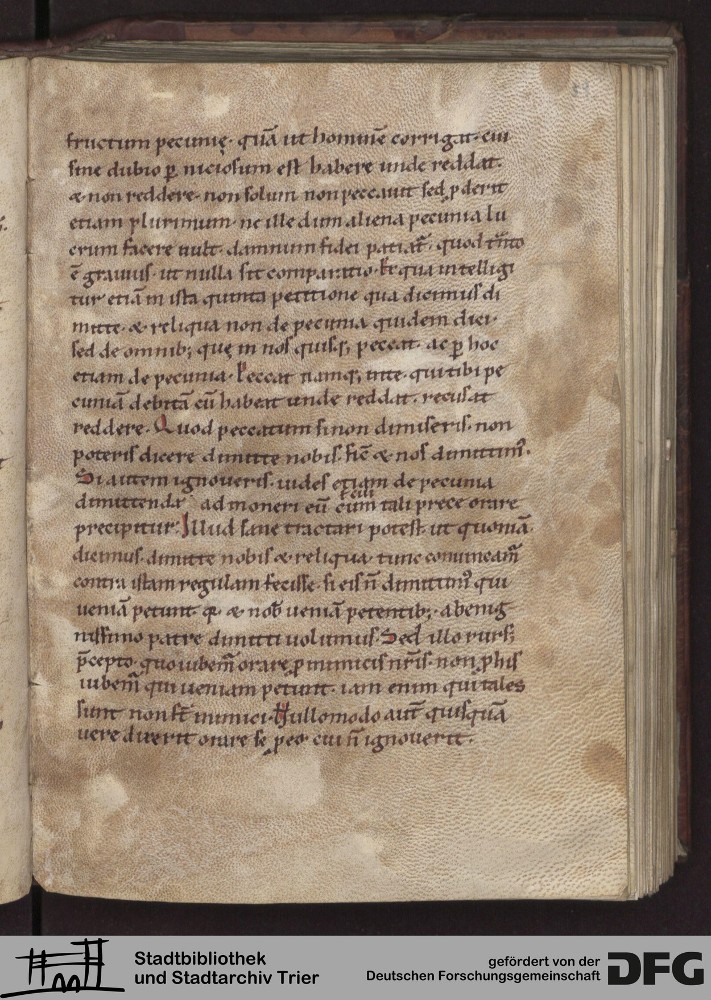 fructum pecunię. quā ut hominē corrigat. cui
sine dubio p̱ niciosum est habere unde reddat.
& non reddere. non solum non peccauit sed p̱ derit
etiam plurimum. ne ille dum aliena pecunia lu
crum facere uult. damnum fidei patiat̄. quod tāto
ē grauius. ut nulla sit comparatio. Et qua intelligi
tur etiā in ista quinta petitione qua dicimus di
mitte. & reliqua non de pecunia quidem dici.
sed de omnib; quę in nos quisq; peccat. ac p̱ hoc
etiam de pecunia. Peccat namq; in te. qui tibi pe
cuniā debitā cū habeat unde reddat. recusat
reddere. Quod peccatum si non dimiseris. non
poteris dicere dimitte nobis. sic̄ & nos dimittim᾽.
Si autem ignoueris. uides etiam de pecunia
dimittenda ad moneri eū cum tali prece orare
precipitur. Illud sane tractari potest. ut quoniā
dicimus. dimitte nobis & reliqua. tunc conuincam̄
contra istam regulam fecisse. si eis n̄ dimittim᾽ qui
ueniā petunt & nob̄ ueniā petentib; a benig
nissimo patre dimitti uolumus. Sed illo rurs;
p̄cepto. quo iubem̄ orare p̱ inimicis nr̄is. non p̱ his
iubem̄ qui ueniam petunt. iam enim qui tales
sunt non st̄ inimici. Nullo modo aut̄ quisquā
uere dixerit orare se p̱ eo. cui n̄ ignouerit.
Stadtbibliothek
und Stadtarchiv Trier
gefördert von der
Deutschen Forschungsgemeinschaft
DFG